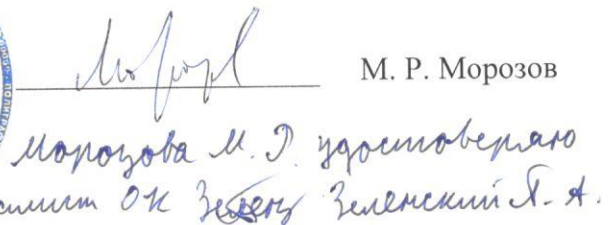 М. Р. Морозов
Морозова М. Р. удостоверяю
ОК Зеленский А.